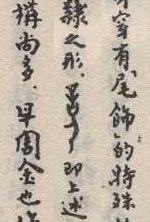 穿有尾飾的特殊
隸之形，即上述
構尚多，早周金也